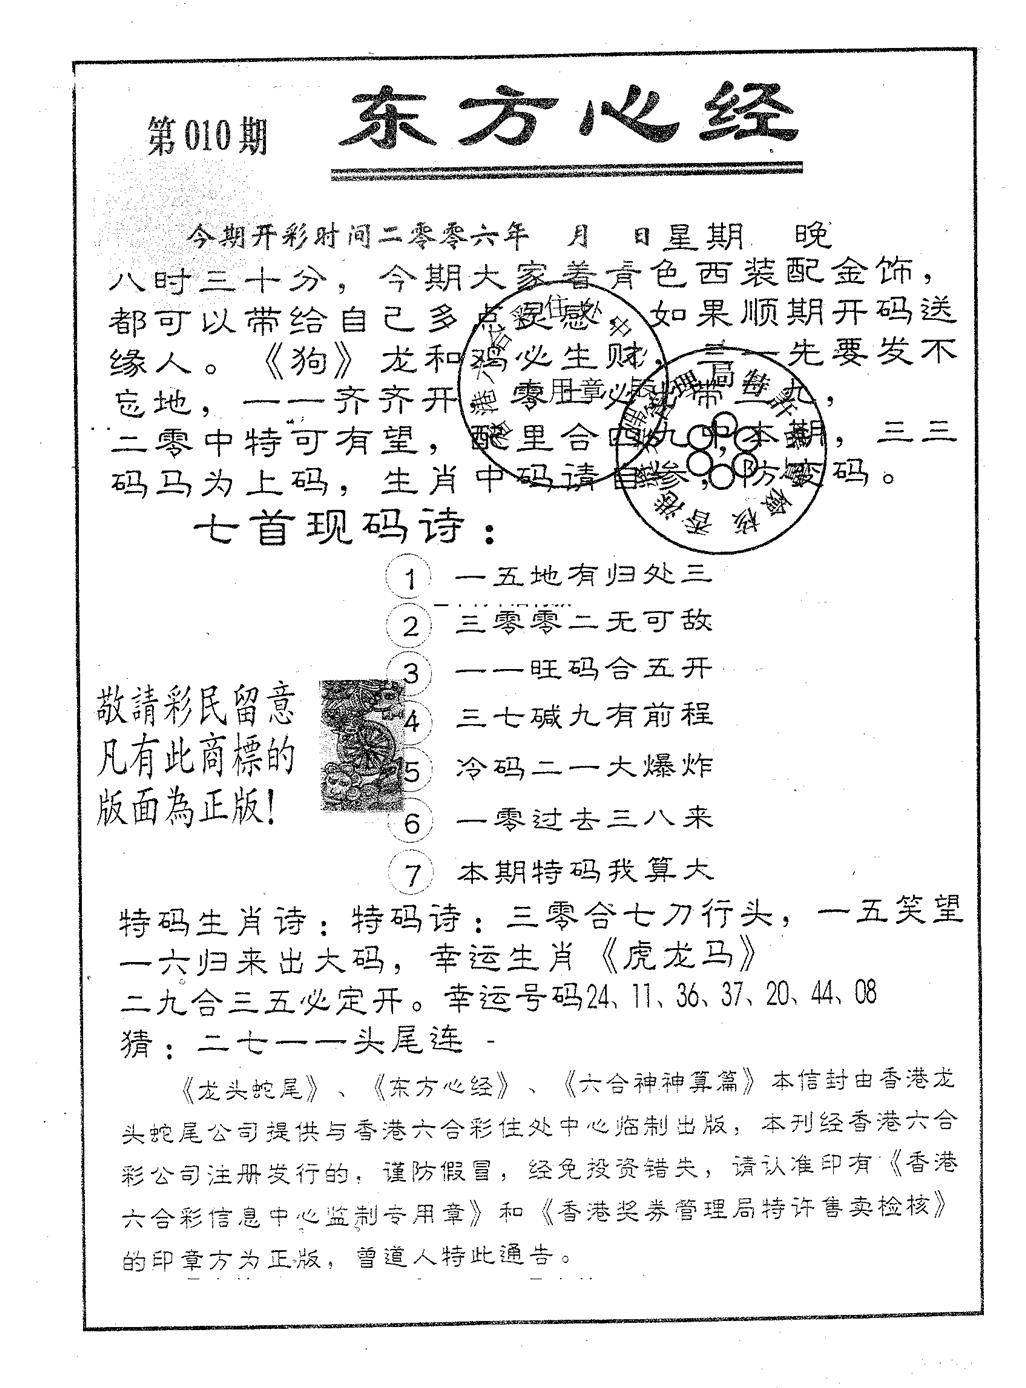 东方心经
第010期
今期开彩时间二零零六年 月 日星期 晚
八时三十分，今期大家着青色西装配金饰，
都可以带给自己多点灵感，如果顺期开码送
缘人。《狗》龙和鸡必生财，三一先要发不
忘地，一一齐齐开，零二必出带三九，
二零中特可有望，配里合四九中本期，三三
码马为上码，生肖中码请自参，防变码。
七首现码诗：
1 一五地有归处三
2 三零零二无可敌
3 一一旺码合五开
4 三七碱九有前程
5 冷码二一大爆炸
6 一零过去三八来
7 本期特码我算大
敬請彩民留意
凡有此商標的
版面為正版！
特码生肖诗：特码诗：三零合七刀行头，一五笑望
一六归来出大码，幸运生肖《虎龙马》
二九合三五必定开。幸运号码24、11、36、37、20、44、08
猜：二七一一头尾连 -
《龙头蛇尾》、《东方心经》、《六合神神算篇》本信封由香港龙
头蛇尾公司提供与香港六合彩住处中心临制出版，本刊经香港六合
彩公司注册发行的，谨防假冒，经免投资错失，请认准印有《香港
六合彩信息中心监制专用章》和《香港奖券管理局特许售卖检核》
的印章方为正版，曾道人特此通告。